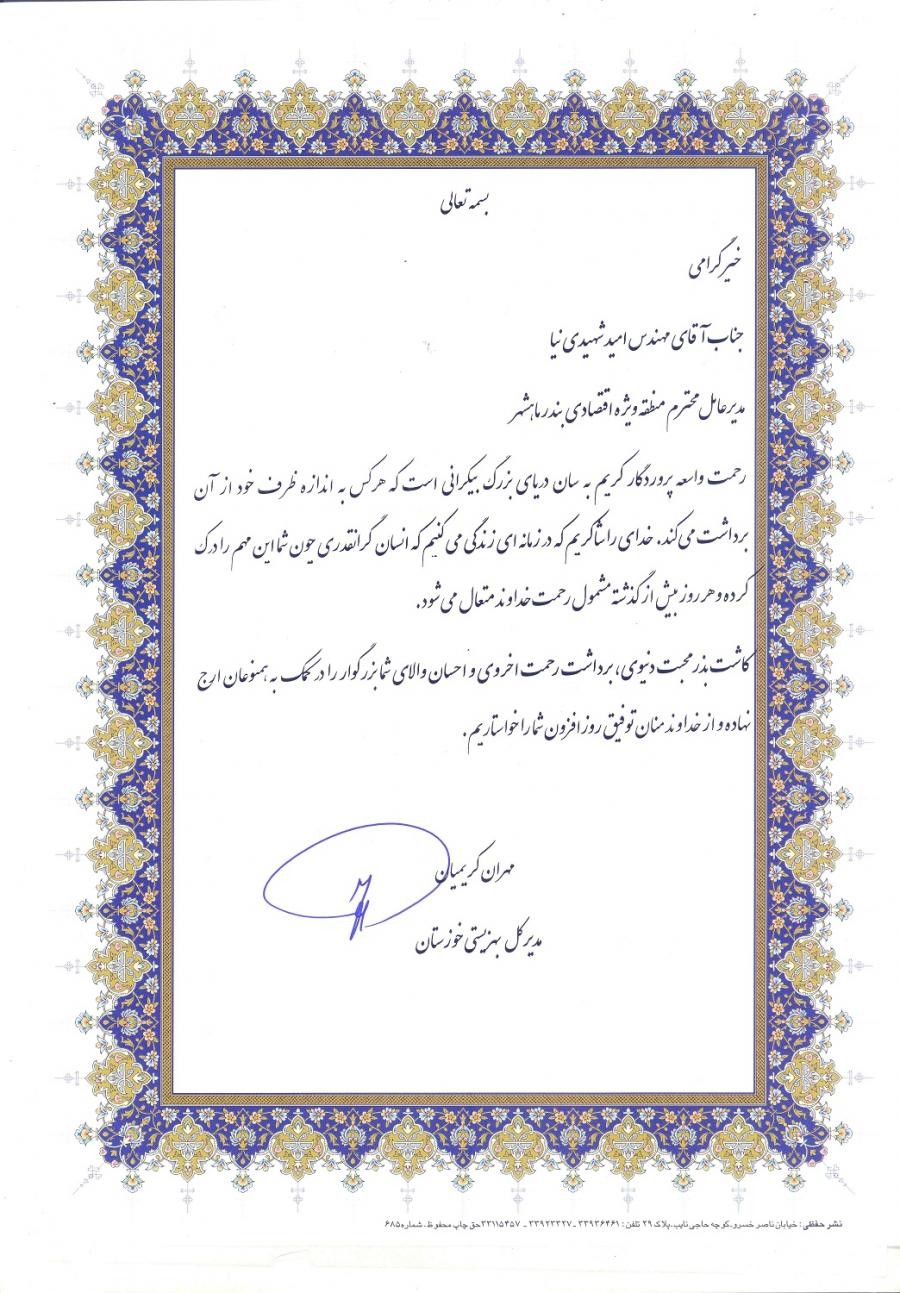 بسمه تعالی
خیر گرامی
جناب آقای مهندس امید شهیدی نیا
مدیرعامل محترم منطقه ویژه اقتصادی بندر ماهشهر
رحمت واسعه پروردگار کریم به سان دریای بزرگ بیکرانی است که هرکس به اندازه ظرف خود از آن
برداشت می‌کند. خدای را شاکریم که در زمانه ای زندگی می کنیم که انسان گرانقدری چون شما این مهم را درک
کرده و هر روز بیش از گذشته مشمول رحمت خداوند متعال می شود.
کاشت بذر محبت دنیوی، برداشت رحمت اخروی و احسان والای شما بزرگوار را در کمک به همنوعان ارج
نهاده و از خداوند منان توفیق روز افزون شما را خواستاریم.
مهران کریمیان
مدیرکل بهزیستی خوزستان
نشر حفظی: خیابان ناصر خسرو، کوچه حاجی نایب، پلاک ۲۹ تلفن: ۳۳۹۳۶۴۶۱ - ۳۳۹۲۳۳۲۷ - ۳۳۱۱۵۴۵۷ حق چاپ محفوظ. شماره ۶۸۵